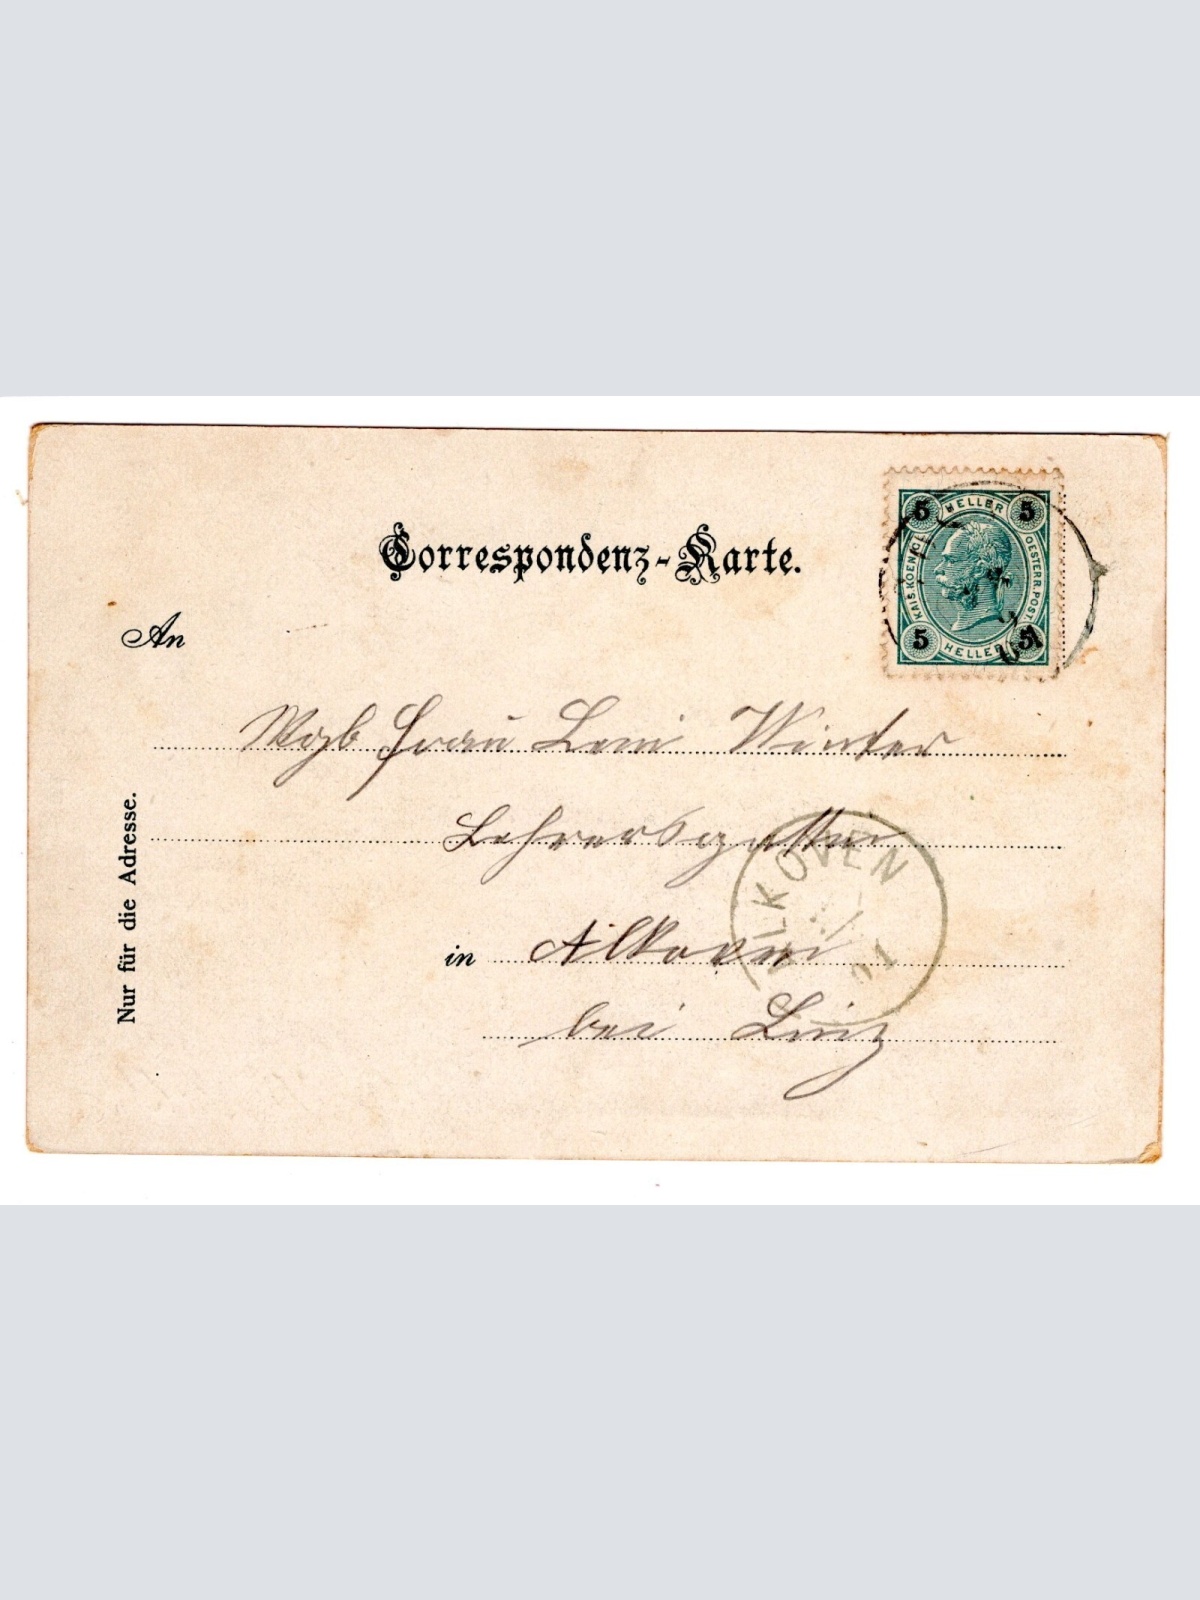 Correspondenz-Karte.
5 HELLER 5
KAIS. KOENIGL.
OESTERR. POST.
5 HELLER 5
01
An
Wgb Frau Leni Winter
Lehrersgattin
ALKOVEN
in Alkoven
01
bei Linz
Nur für die Adresse.